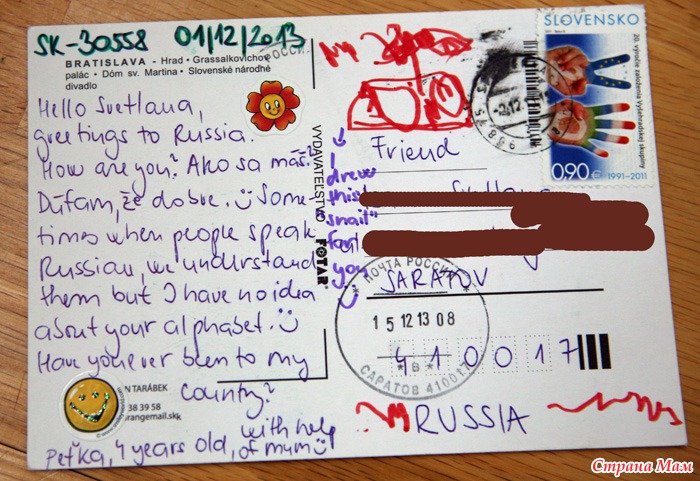 SK-30558 01/12/2013
BRATISLAVA - Hrad · Grassalkovichov
palác · Dóm sv. Martina · Slovenské národné
divadlo
Hello Svetlana,
greetings to Russia.
How are you? Ako sa máš?
Dúfam, že dobre. Some-
times when people speak
Russian, we understand
them but I have no idea
about your alphabet.
Have you ever been to my
country?
N TARÁBEK
38 39 58
orangemail.sk
Peťka, 4 years old, with help
of mum
VYDAVATEĽSTVO
FOTAR
I drew
this
"snail"
for
you
SLOVENSKO
20. výročie založenia Vyšehradskej skupiny
0,90 €
1991-2011
Friend
Svetlana
SARATOV
ПОЧТА РОССИИ
15 12 13 08
*В*
САРАТОВ 410017
410017
RUSSIA
Страна Мам